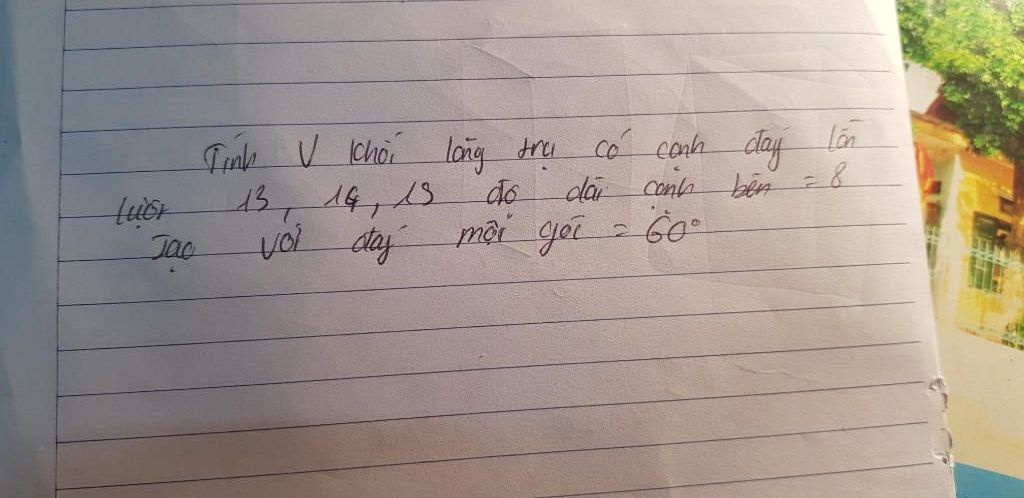 Tính V khối lăng trụ có cạnh đáy lần
lượt 13, 14, 15 độ dài cạnh bên = 8
Tạo với đáy một góc = 60°